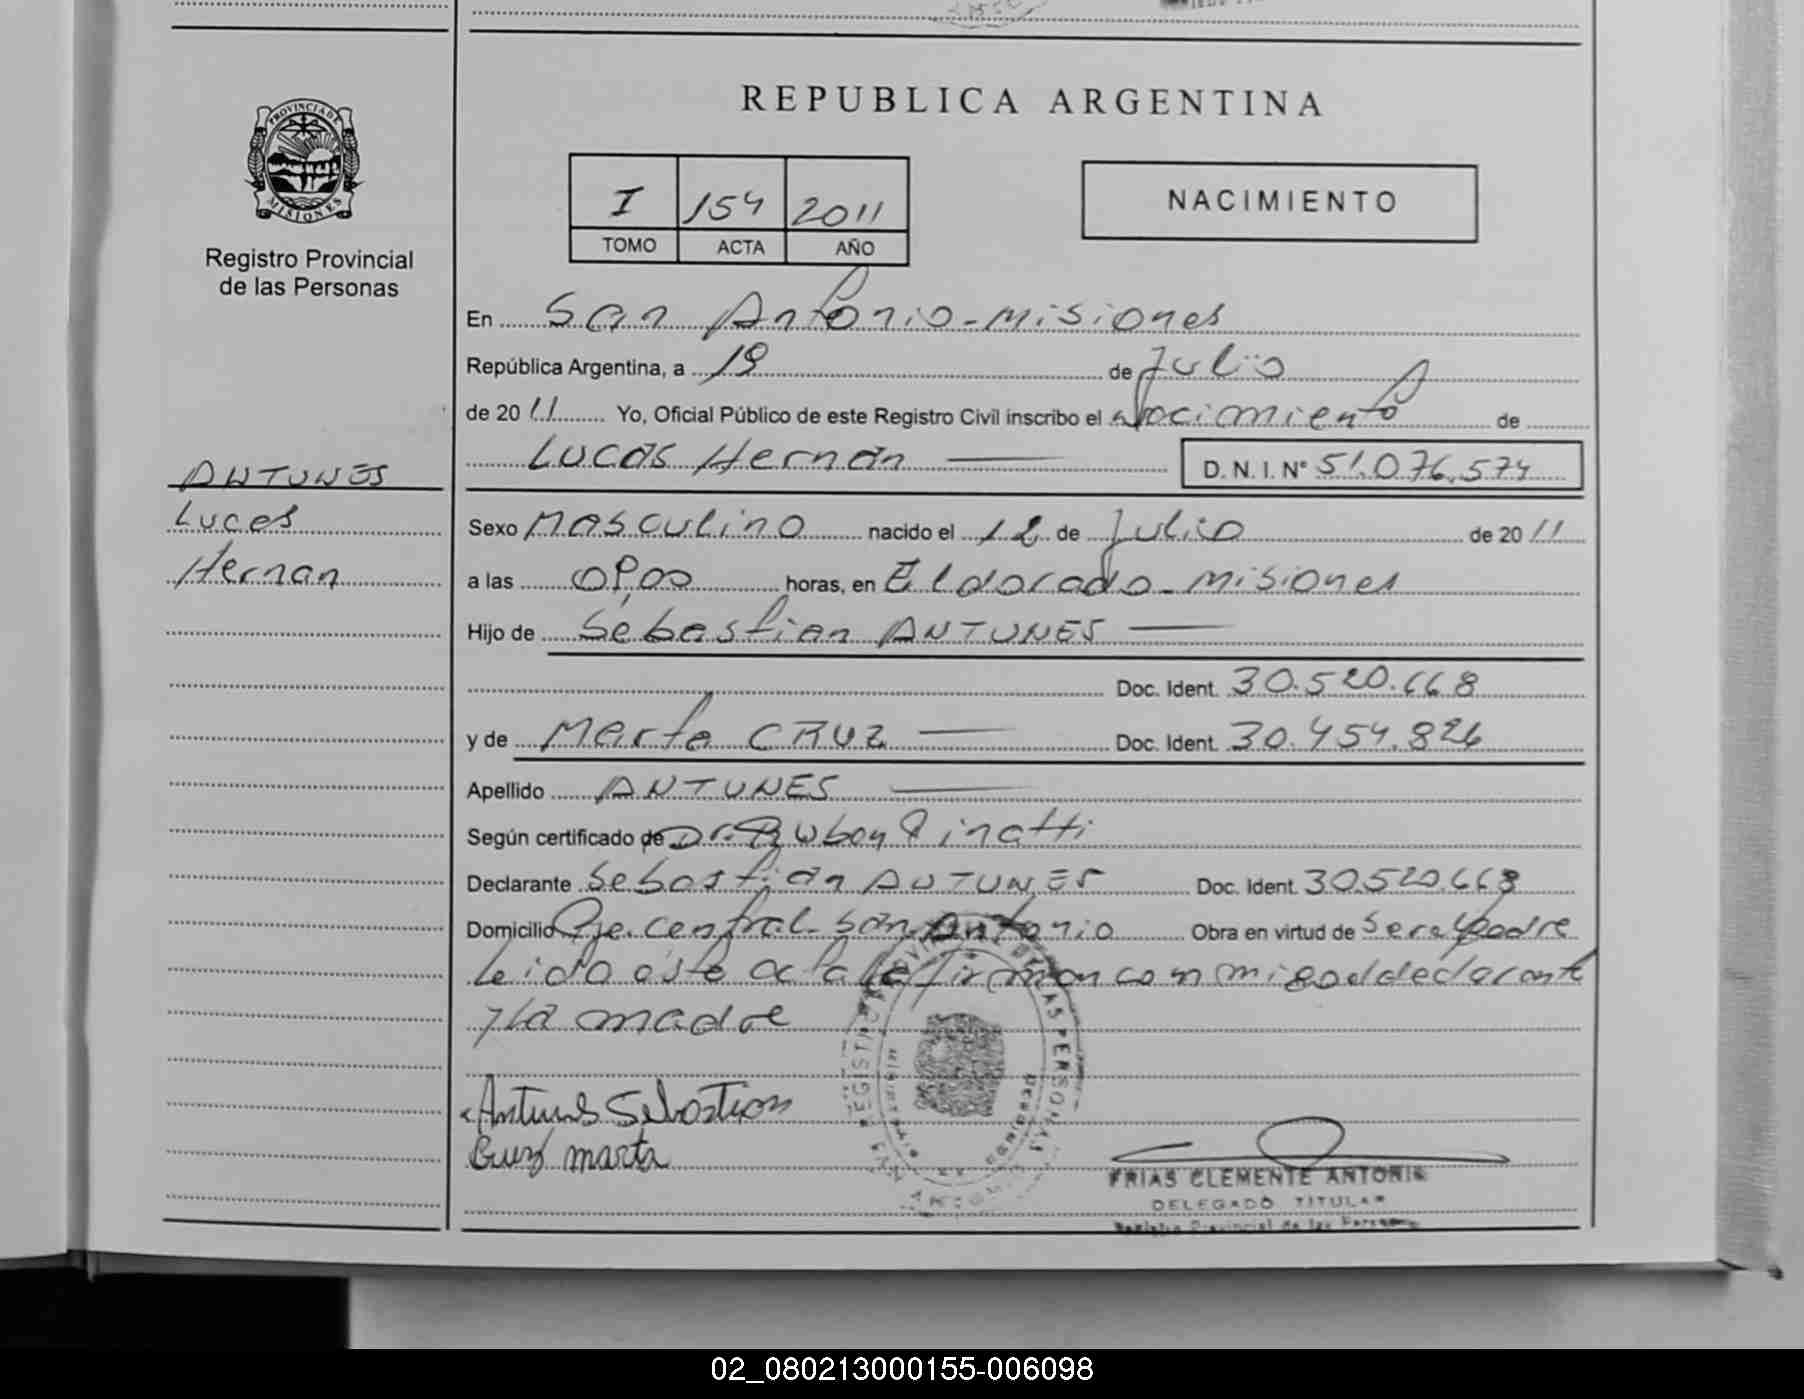 REPUBLICA ARGENTINA
PROVINCIA DE
MISIONES
Registro Provincial
de las Personas
I 154 2011
TOMO ACTA AÑO
NACIMIENTO
En San Antonio - Misiones
República Argentina, a 19 de Julio
de 20 11 Yo, Oficial Público de este Registro Civil inscribo el Nacimiento de
Lucas Hernán D.N.I. Nº 51.076.574
ANTUNES
Lucas
Hernan
Sexo Masculino nacido el 12 de Julio de 20 11
a las horas, en Eldorado - Misiones
Hijo de Sebastian ANTUNES
Doc. Ident. 30.520.668
y de Marta CRUZ Doc. Ident. 30.454.826
Apellido ANTUNES
Según certificado de Dr. Ruben Pinatti
Declarante Sebastián ANTUNES Doc. Ident. 30.520.668
Domicilio Pje. Central - San Antonio Obra en virtud de Ser el padre
Leido este acta la firman conmigo el declarante
y la madre
Antunes Sebastian
Cruz marta
REGISTRO PROVINCIAL DE LAS PERSONAS
FRIAS CLEMENTE ANTONIO
DELEGADO TITULAR
Registro Provincial de las Personas
02_080213000155-006098